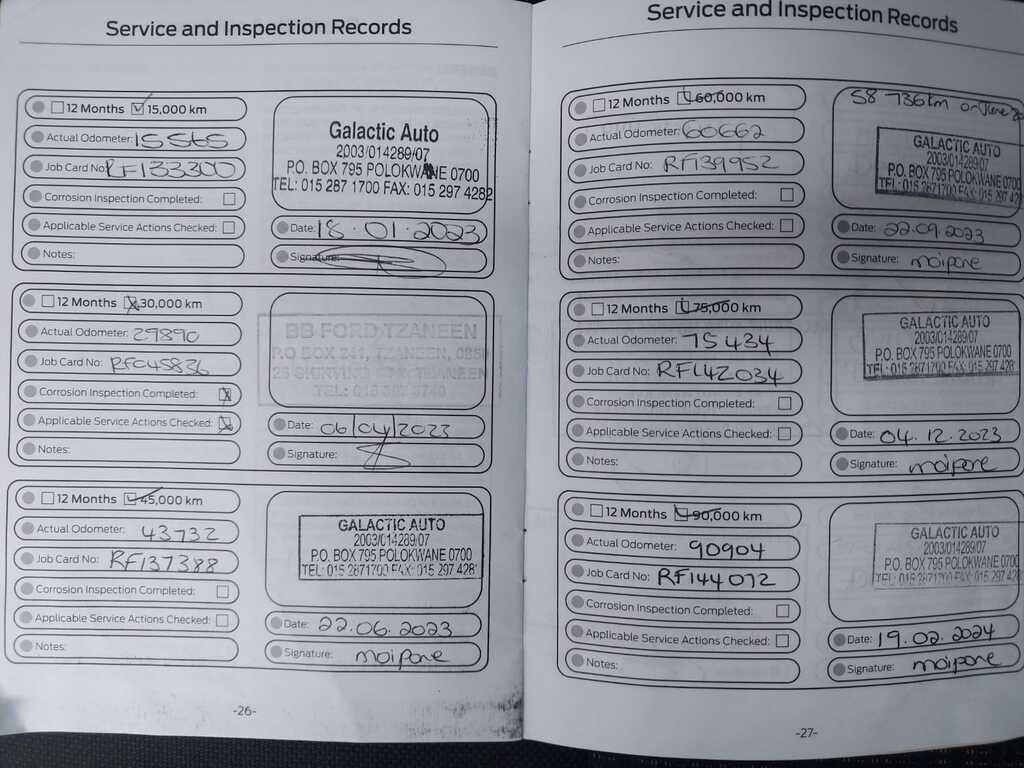 Service and Inspection Records
12 Months 15,000 km
Actual Odometer: 15565
Job Card No: RF133300
Corrosion Inspection Completed:
Applicable Service Actions Checked:
Notes:
Galactic Auto
2003/014289/07
P.O. BOX 795 POLOKWANE 0700
TEL: 015 287 1700 FAX: 015 297 4282
Date: 18.01.2023
Signature:
12 Months 30,000 km
Actual Odometer: 29890
Job Card No: RFC45836
Corrosion Inspection Completed:
Applicable Service Actions Checked:
Notes:
BB FORD TZANEEN
P.O BOX 241, TZANEEN, 0850
Date: 06/04/2023
Signature:
12 Months 45,000 km
Actual Odometer: 43732
Job Card No: RF137388
Corrosion Inspection Completed:
Applicable Service Actions Checked:
Notes:
GALACTIC AUTO
2003/014289/07
P.O. BOX 795 POLOKWANE 0700
TEL: 015 2871700 FAX: 015 297 428
Date: 22.06.2023
Signature: moipone
-26-
Service and Inspection Records
12 Months 60,000 km
Actual Odometer: 60662
Job Card No: RF139952
Corrosion Inspection Completed:
Applicable Service Actions Checked:
Notes:
58 736km on June
GALACTIC AUTO
2003/014289/07
P.O. BOX 795 POLOKWANE 0700
TEL: 015 2871700 FAX: 015 297 428
Date: 22.09.2023
Signature: moipone
12 Months 75,000 km
Actual Odometer: 75434
Job Card No: RF142034
Corrosion Inspection Completed:
Applicable Service Actions Checked:
Notes:
GALACTIC AUTO
2003/014289/07
P.O. BOX 795 POLOKWANE 0700
TEL: 015 2871700 FAX: 015 297 428
Date: 04.12.2023
Signature: moipone
12 Months 90,000 km
Actual Odometer: 90904
Job Card No: RF144072
Corrosion Inspection Completed:
Applicable Service Actions Checked:
Notes:
GALACTIC AUTO
2003/014289/07
P.O. BOX 795 POLOKWANE 0700
TEL: 015 2871700 FAX: 015 297 428
Date: 19.02.2024
Signature: moipone
-27-